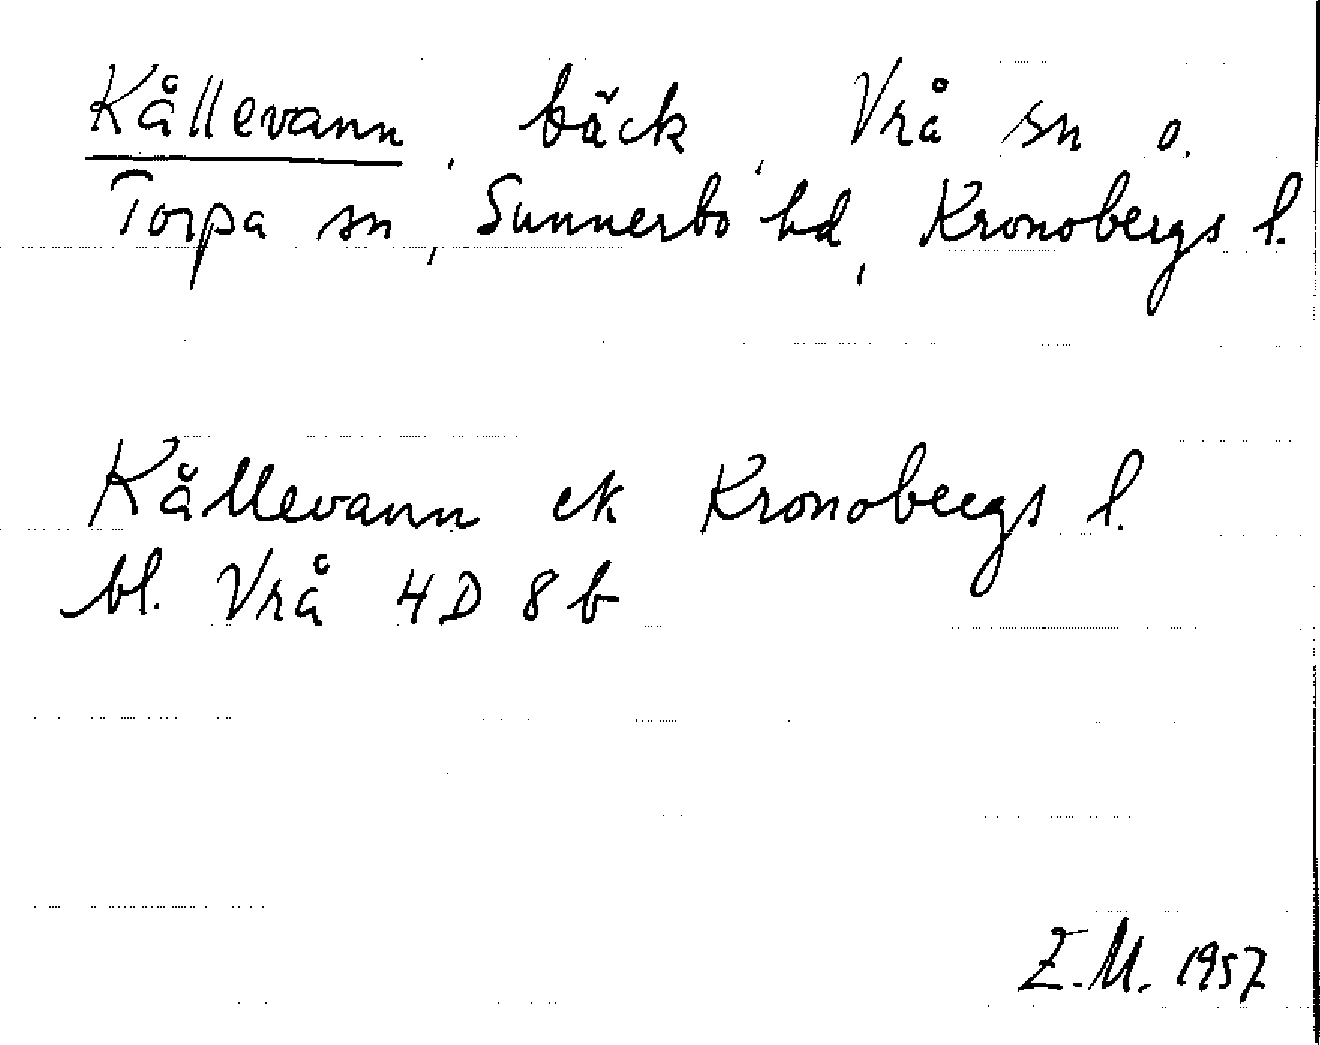 Kållevann, bäck, Vrå sn o.
Torpa sn, Sunnerbo hd, Kronobergs l.
Kållevann ek Kronobergs l.
bl. Vrå 4D 8b
E.M. 1957